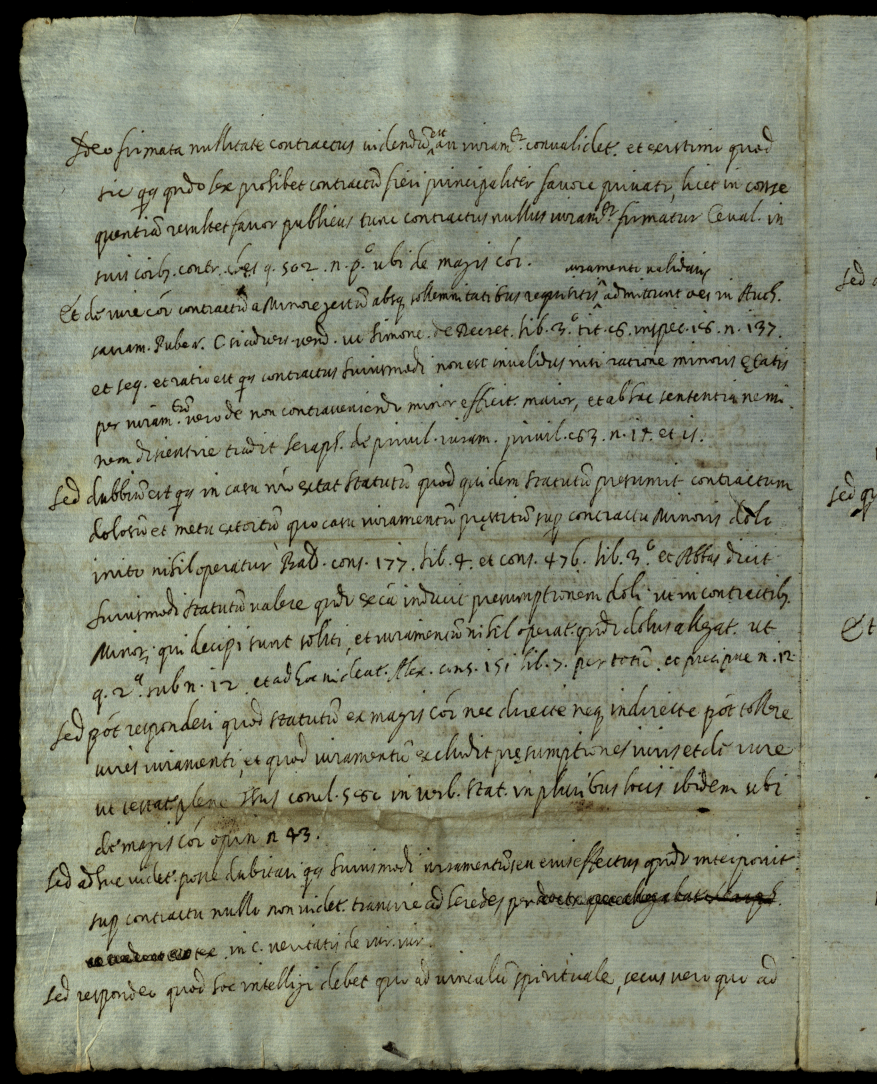 Ideo firmata nullitate contractus videndũ est an iuram.to convalidet. et existimo quod
sic qꝫ qñdo lex prohibet contractũ fieri principaliter favore privati, licet in conse
quentiã resultet favor publicus tunc contractus nullus iuram.to firmatur Ceval. in
suis coĩbꝫ. contr. q. 502. n. p.o ubi de magis cõi.
Et de iure cõi contractũ a Minore gestũ absqꝫ sollemnitatibus requisitis iuramenti validari admittunt oẽs in Auth.
sacram. Puber. C. si advers. vend. ut Simonc. de Decret. lib. 3.o tit. 6. inspec. 16. n. 137.
et seq. et ratio est qꝫ contractus huiusmodi non est invalidus nisi ratione minoris ętatis
per iuram.tum vero de non contraveniendo minor efficit. maior, et ab hac sententia nemi
nem disentire tradit Seraph. de privil. iuram. privil. 63. n. 14. et 15.
Sed dubbiũ est qꝫ in casu nr̃o extat Statutũ quod quidem statutũ presumit contractum
dolosũ et metu extortũ quo casu iuramentũ pręstitũ sup contractu Minoris doli
inito nihil operatur Bald. cons. 177. lib. 4. et cons. 476. lib. 3.o et Abbas dicit
huiusmodi statutũ valere qñdo ex cã inducit presumptionem doli ut in contractibꝫ.
Minor; qui decipi sunt soliti, et iuramentũ nihil operat. qñdo dolus allegat. ut
q. 2.a sub n. 12. et ad hoc videat. Alex. cons. 151 lib. 7. per totũ. et precipue n. 12.
Sed põt responderi quod statutũ ex magis cõi nec directe neqꝫ indirecte põt tollere
vires iuramenti, et quod iuramentũ excludit pręsumptiones iuris et de iure
ut testat. plene concl. in verb. Stat. in pluribus locis ibidem ubi
de magis cõi opin n 43.
Sed adhuc videt. posse dubitari qꝫ huiusmodi iuramentũ seu eius effectus qñdo interponit.
sup contractu nullo non videt. transire ad heredes per
in c. veritatis de iur. iur.
Sed respondeo quod hoc intelligi debet quo ad vinculũ spirituale, secus vero quo ad
Sed
Sed
Et